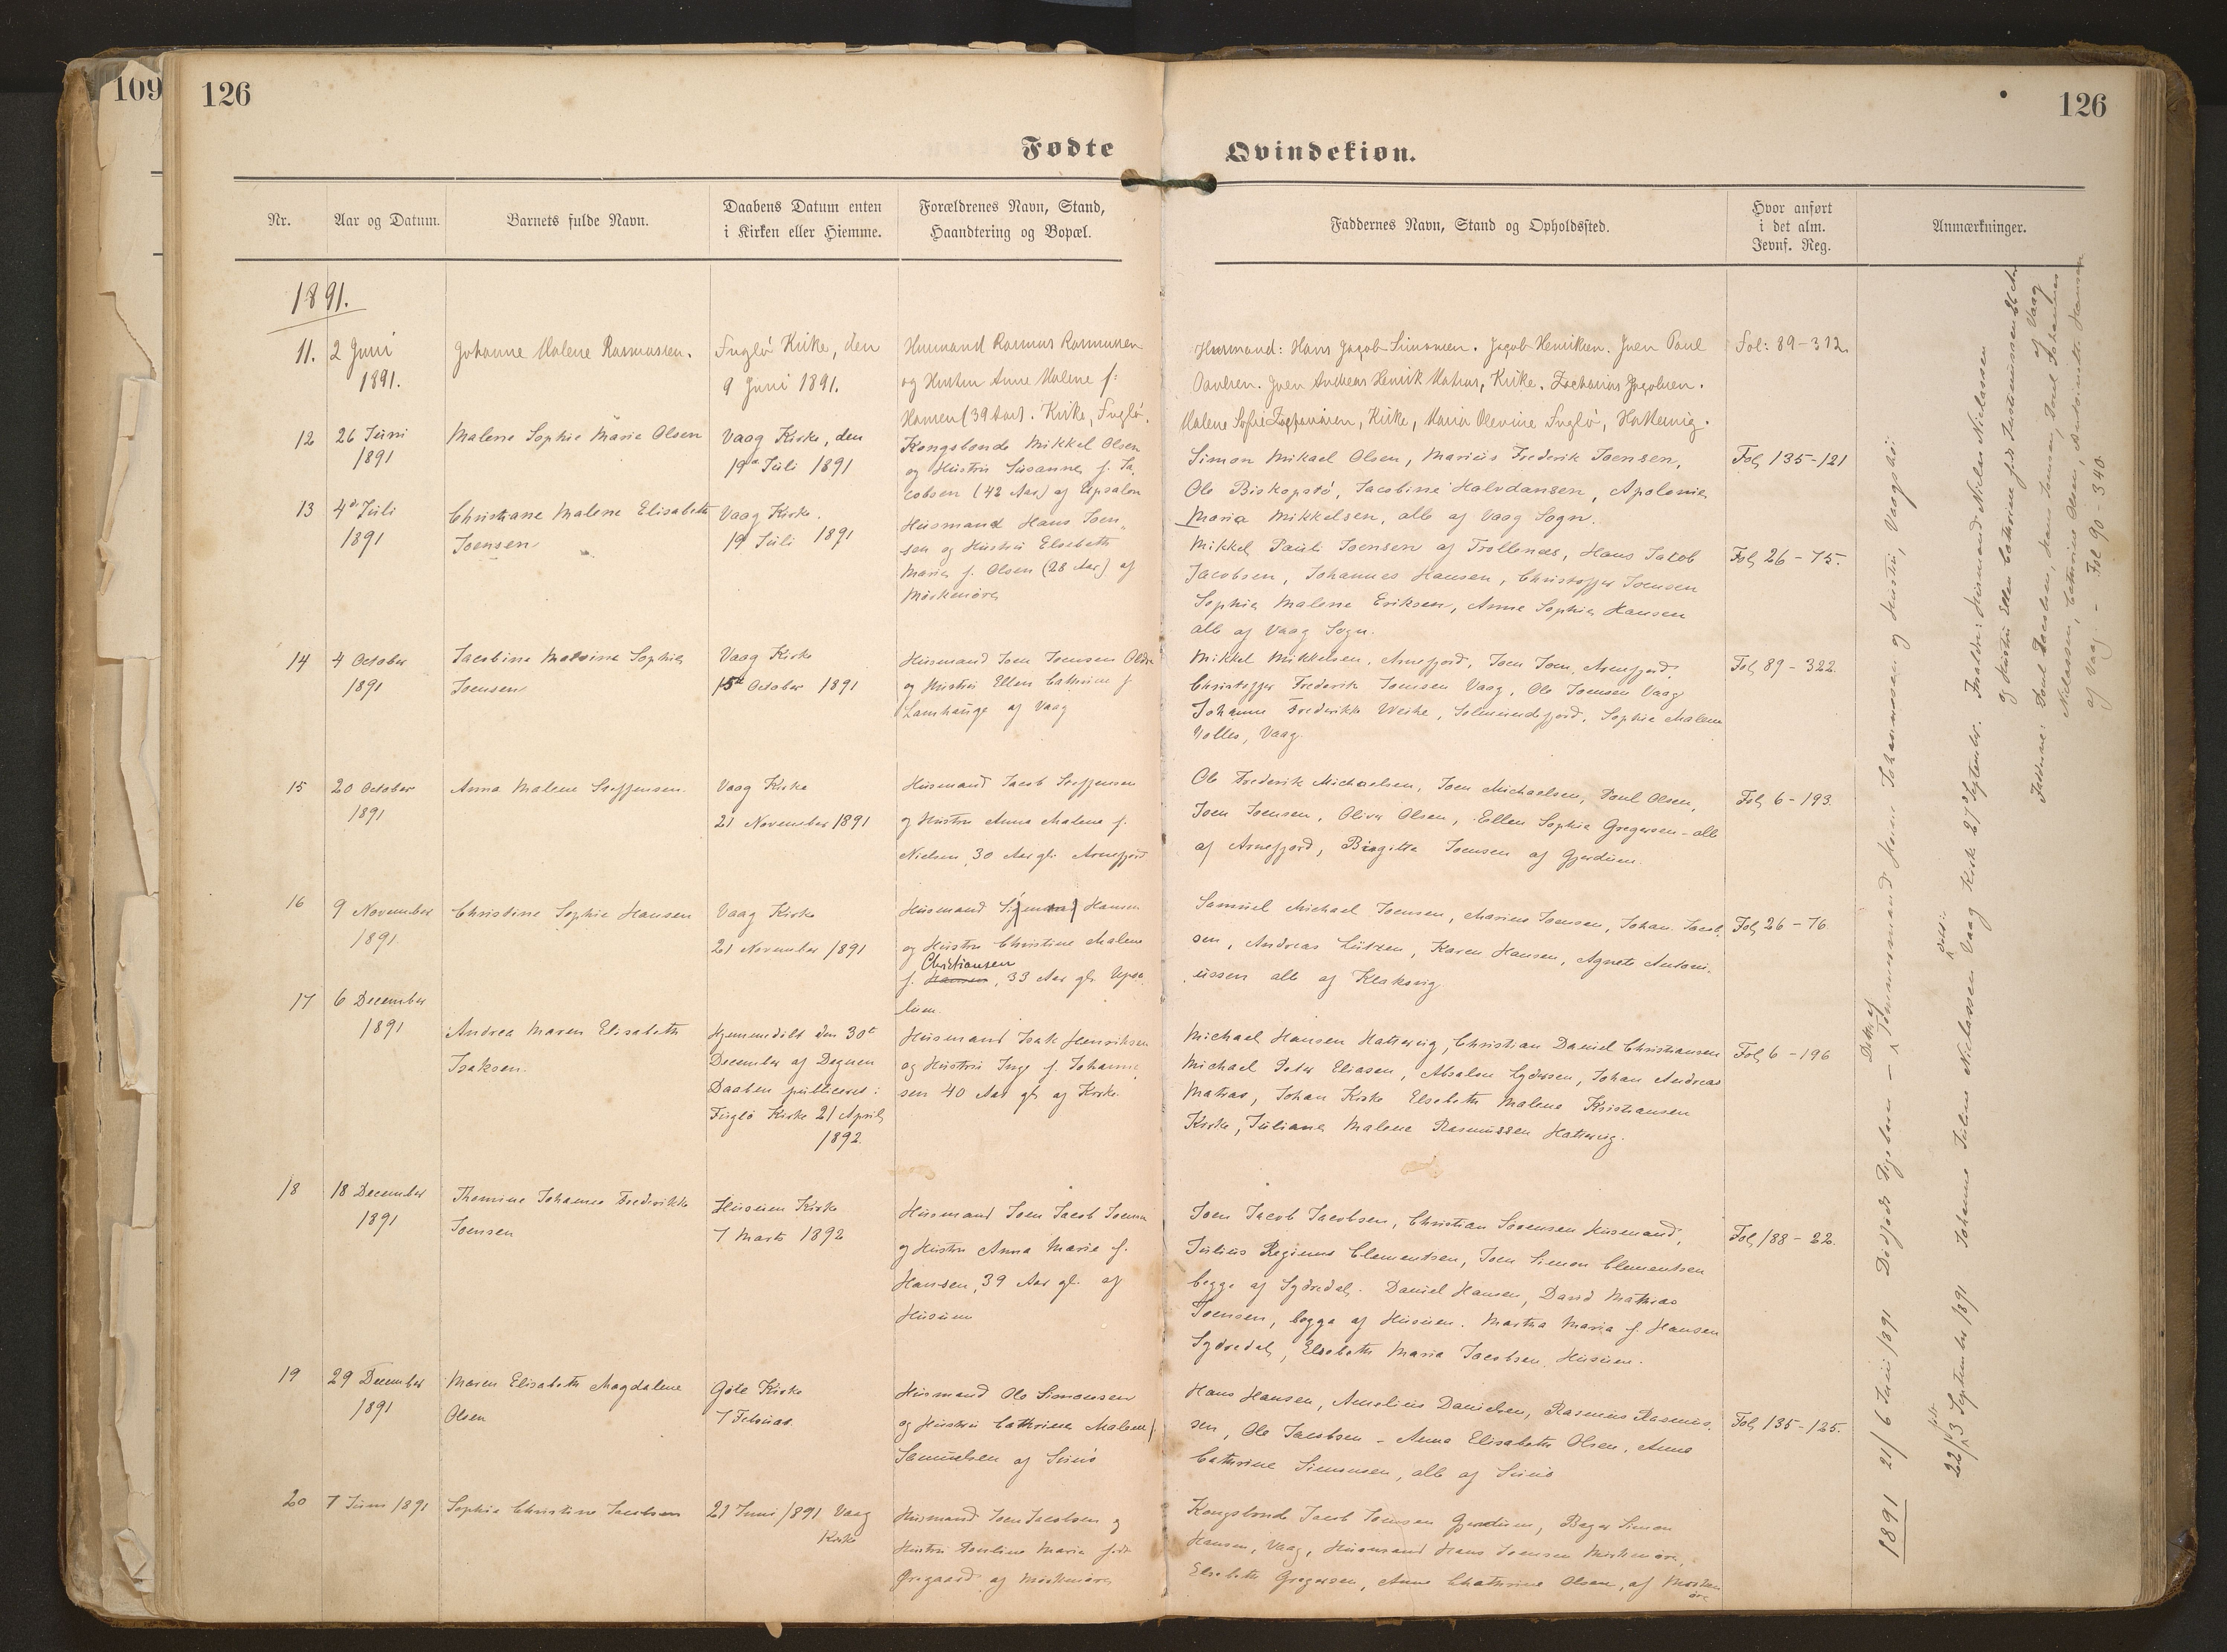 109
126
126
Fødte
Qvindekiøn.
Nr.
Aar og Datum.
Barnets fulde Navn.
Daabens Datum enten
i Kirken eller Hiemme.
Forældrenes Navn, Stand,
Haandtering og Bopæl.
Faddernes Navn, Stand og Opholdssted.
Hvor anført
i det alm.
Jevnf. Reg.
Anmærkninger.
1891.
11.
2 Juni
1891.
Johanne Malene Rasmussen.
Fuglø Kirke, den
9 Juni 1891.
Husmand Rasmus Rasmussen
og Hustru Anne Malene f:
Hansen (39 Aar). Kirke, Fuglø.
Husmand: Hans Jacob Simonsen. Jacob Henriksen. Joen Paul
Poulsen. Joen Andreas Henrik Matras, Kirke. Zacharias Jacobsen.
Malene Sofie Zachariasen, Kirke, Maria Olevine Fuglø, Hattervig.
Fol: 89-312.
12
26 Juni
1891
Malene Sophie Marie Olsen
Vaag Kirke, den
19de Juli 1891
Kongsbonde Mikkel Olsen
og Hustru Susanne f. Ja-
cobsen (42 Aar) af Upsalon
Simon Mikael Olsen, Marius Frederik Joensen,
Ole Biskopstø, Jacobine Halvdansen, Apolonie
Maria Mikkelsen, alle af Vaag Sogn.
Fol 135-121
13
4de Juli
1891
Christiane Malene Elisabeth
Joensen
Vaag Kirke.
19 Juli 1891
Husmand Hans Joen-
sen og Hustru Elsebeth
Marie f. Olsen (28 Aar) af
Mørkenøre
Mikkel Pauli Joensen af Trollenæs, Hans Jacob
Jacobsen, Johannes Hansen, Christoffer Joensen
Sophie Malene Eriksen, Anne Sophie Hansen
alle af Vaag Sogn.
Fol 26-75.
14
4 October
1891
Jacobine Malvine Sophie
Joensen
Vaag Kirke
15de October 1891
Husmand Joen Joensen
og Hustru Ellen Cathrine f
Lamhauge af Vaag
Mikkel Mikkelsen, Arnefjord, Joen Joen, Arnefjord,
Christoffer Frederik Joensen Vaag, Ole Joensen Vaag
Johanne Frederikke Weihe, Selmundefjord, Sophie Malene
Vaag.
Fol 89-322.
15
20 October
1891
Anna Malene Steffensen.
Vaag Kirke
21 November 1891
Husmand Jacob Steffensen
og Hustru Anna Malene f.
Nielsen, 30 Aar gl. Arnefjord
Ole Frederik Michaelsen, Joen Michaelsen, Poul Olsen,
Joen Joensen, Oliva Olsen, Ellen Sophie Gregersen - alle
af Arnefjord, Birgitta Joensen af Gjerdum.
Fol 6-193.
16
9 November
1891
Christine Sophie Hansen
Vaag Kirke
21 November 1891
Husmand Hansen
og Hustru Christine Malene
Christiansen
f. Hansen, 33 Aar gl. Upsa-
lum.
Samuel Michael Joensen, Marius Joensen, Johan Jacob-
sen, Andreas Lützen, Karen Hansen, Agnete Antoni-
ussen alle af Klaksvig
Fol 26-76
17
6 December
1891
Andrea Maren Elisabeth
Isaksen.
Hjemmedøbt den 30te
December af Degnen
Daaben publiceret:
Fuglø Kirke 21 April
1892.
Husmand Isak Henriksen
og Hustru Inge f. Johanne-
sen 40 Aar gl. af Kirke.
Michael Hansen Hattervig, Christian Daniel Christiansen
Michael Peter Eliasen, Absalon Lydersen, Johan Andreas
Matras, Johan Kirke Elsebeth Malene Kristiansen
Kirke, Juliane Malene Rasmussen Hattervig.
Fol 6-196
18
18 December
1891
Thomine Johanne Frederikke
Joensen
Husum Kirke
7 Marts 1892
Husmand Joen Jacob Joensen
og Hustru Anna Marie f.
Hansen, 39 Aar gl. af
Husum
Joen Jacob Jacobsen, Christian Sørensen Husmand,
Julius Regines Clementsen, Joen Simon Clementsen
begge af Sydredal. Daniel Hansen, David Mathias
Joensen, begge af Husum. Martha Maria f. Hansen
Sydredal, Elsebeth Maria Jacobsen, Husum.
Fol 188-22.
19
29 December
1891
Maren Elisabeth Magdalene
Olsen
Gøte Kirke
7 Februar
Husmand Ole Simonsen
og Hustru Cathrine Malene f
Samuelsen af
Hans Hansen, Amelius Danielsen, Rasmus Rasmus-
sen, Ole Jacobsen - Anna Elisabeth Olsen, Anna
Cathrine Simonsen, alle af
Fol 135-125.
20
7 Juni 1891
Sophie Christine Jacobsen
21 Juni 1891 Vaag
Kirke
Husmand Joen Jacobsen og
Hustru Pauline Maria født
Øregaard af Mørkenøre
Kongsbonde Jacob Joensen Gjerdum, Bager Simon
Hansen, Vaag, Husmand Hans Joensen Mørkenøre,
Elsebeth Gregersen, Anne Chathrine Olsen, af Mørken
øre
1891 21/6 Juni 1891 Dødfødt Pigebarn - Datter af Tømmermand Johannessen og Hustru, Vaagsbø
22/ født 3 September 1891 Johanne Juline Nielassen døbt Vaag Kirke 27de September. Forældre: Husmand Niclas Nielassen
og Hustru Ellen Cathrine født Justinussen
af Vaag
Fadderne: Poul Jacobsen, Hans Joensen, Poul Johannes
Nielassen, Cathrine Olsen, Hansen
af Vaag. - Fol 90-340.